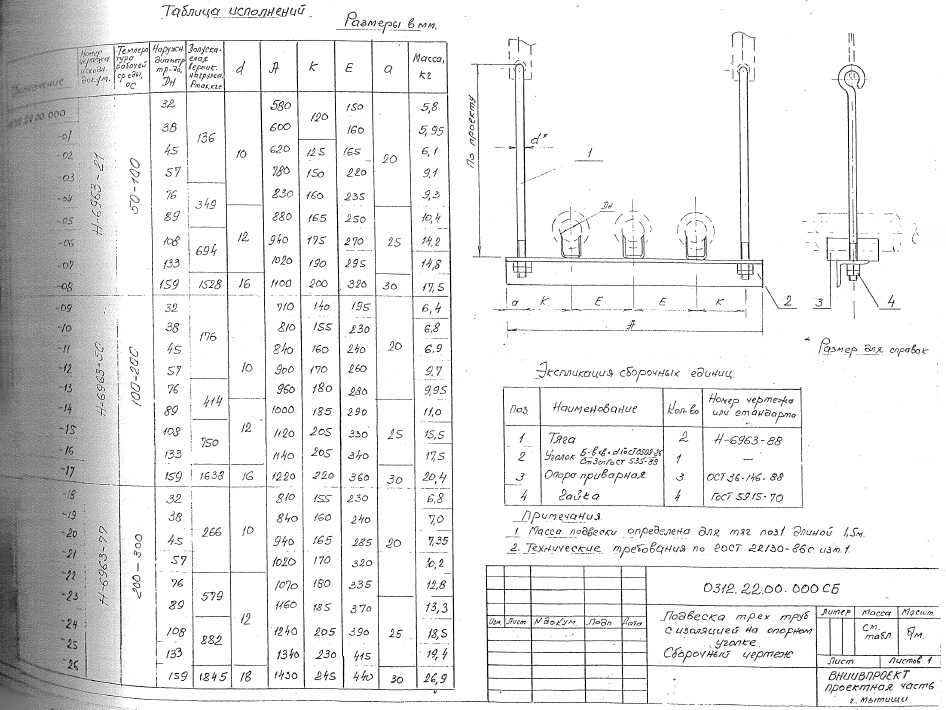 Таблица исполнений
Размеры в мм.
Номер чертежа исходн. докум.
Температура рабочей среды, °С
Наружн. диаметр тр-да, Dн
Допускаемая вертик. нагрузка, Pmax, кгс
d A K E a Масса, кг
22 00 000 32 580 150 5,8
-01 38 136 600 120 160 5,95
-02 45 10 620 125 165 20 6,1
-03 57 780 150 220 9,1
-04 76 349 230 160 235 9,3
-05 89 880 165 250 10,4
-06 108 694 12 940 175 270 25 14,2
-07 133 1020 190 295 14,8
-08 159 1528 16 1100 200 320 30 17,5
Н-6963-21
50-100
-09 32 710 140 195 6,4
-10 38 176 810 155 230 6,8
-11 45 840 160 240 20 6,9
-12 57 10 900 170 260 9,7
-13 76 414 960 180 280 9,95
-14 89 12 1000 185 290 11,0
-15 108 750 1120 205 330 25 15,5
-16 133 1140 205 340 17,5
-17 159 1638 16 1220 220 360 30 20,4
Н-6963-50
100-200
-18 32 810 155 230 6,8
-19 38 266 10 840 160 240 7,0
-20 45 940 165 285 20 7,35
-21 57 1020 170 320 10,2
-22 76 579 1070 180 335 12,8
-23 89 12 1160 185 370 13,3
-24 108 882 1240 205 390 25 18,5
-25 133 1340 230 415 19,4
-26 159 1845 18 1430 245 440 30 26,9
Н-6963-77
200-300
По проекту
d*
1
Dн
а K E E K
A
2
3
4
* Размер для справок
Экспликация сборочных единиц.
Поз. Наименование Кол-во Номер чертежа или стандарта
1 Тяга 2 Н-6963-88
2 Уголок 1 —
3 Опора приварная 3 ОСТ 36-146-88
4 Гайка 4 ГОСТ 5915-70
Примечания
1. Масса подвески определена для тяг поз.1 длиной 1,5м.
2. Технические требования по ГОСТ 22130-86 с изм.1.
0312.22.00.000 СБ
Изм. Лист N докум. Подп Дата
Подвеска трех труб
с изоляцией на опорном
уголке.
Сборочный чертеж
Литер Масса Масшт.
См. табл. б/м.
Лист Листов 1
ВНИИВПРОЕКТ
проектная часть
г. Мытищи